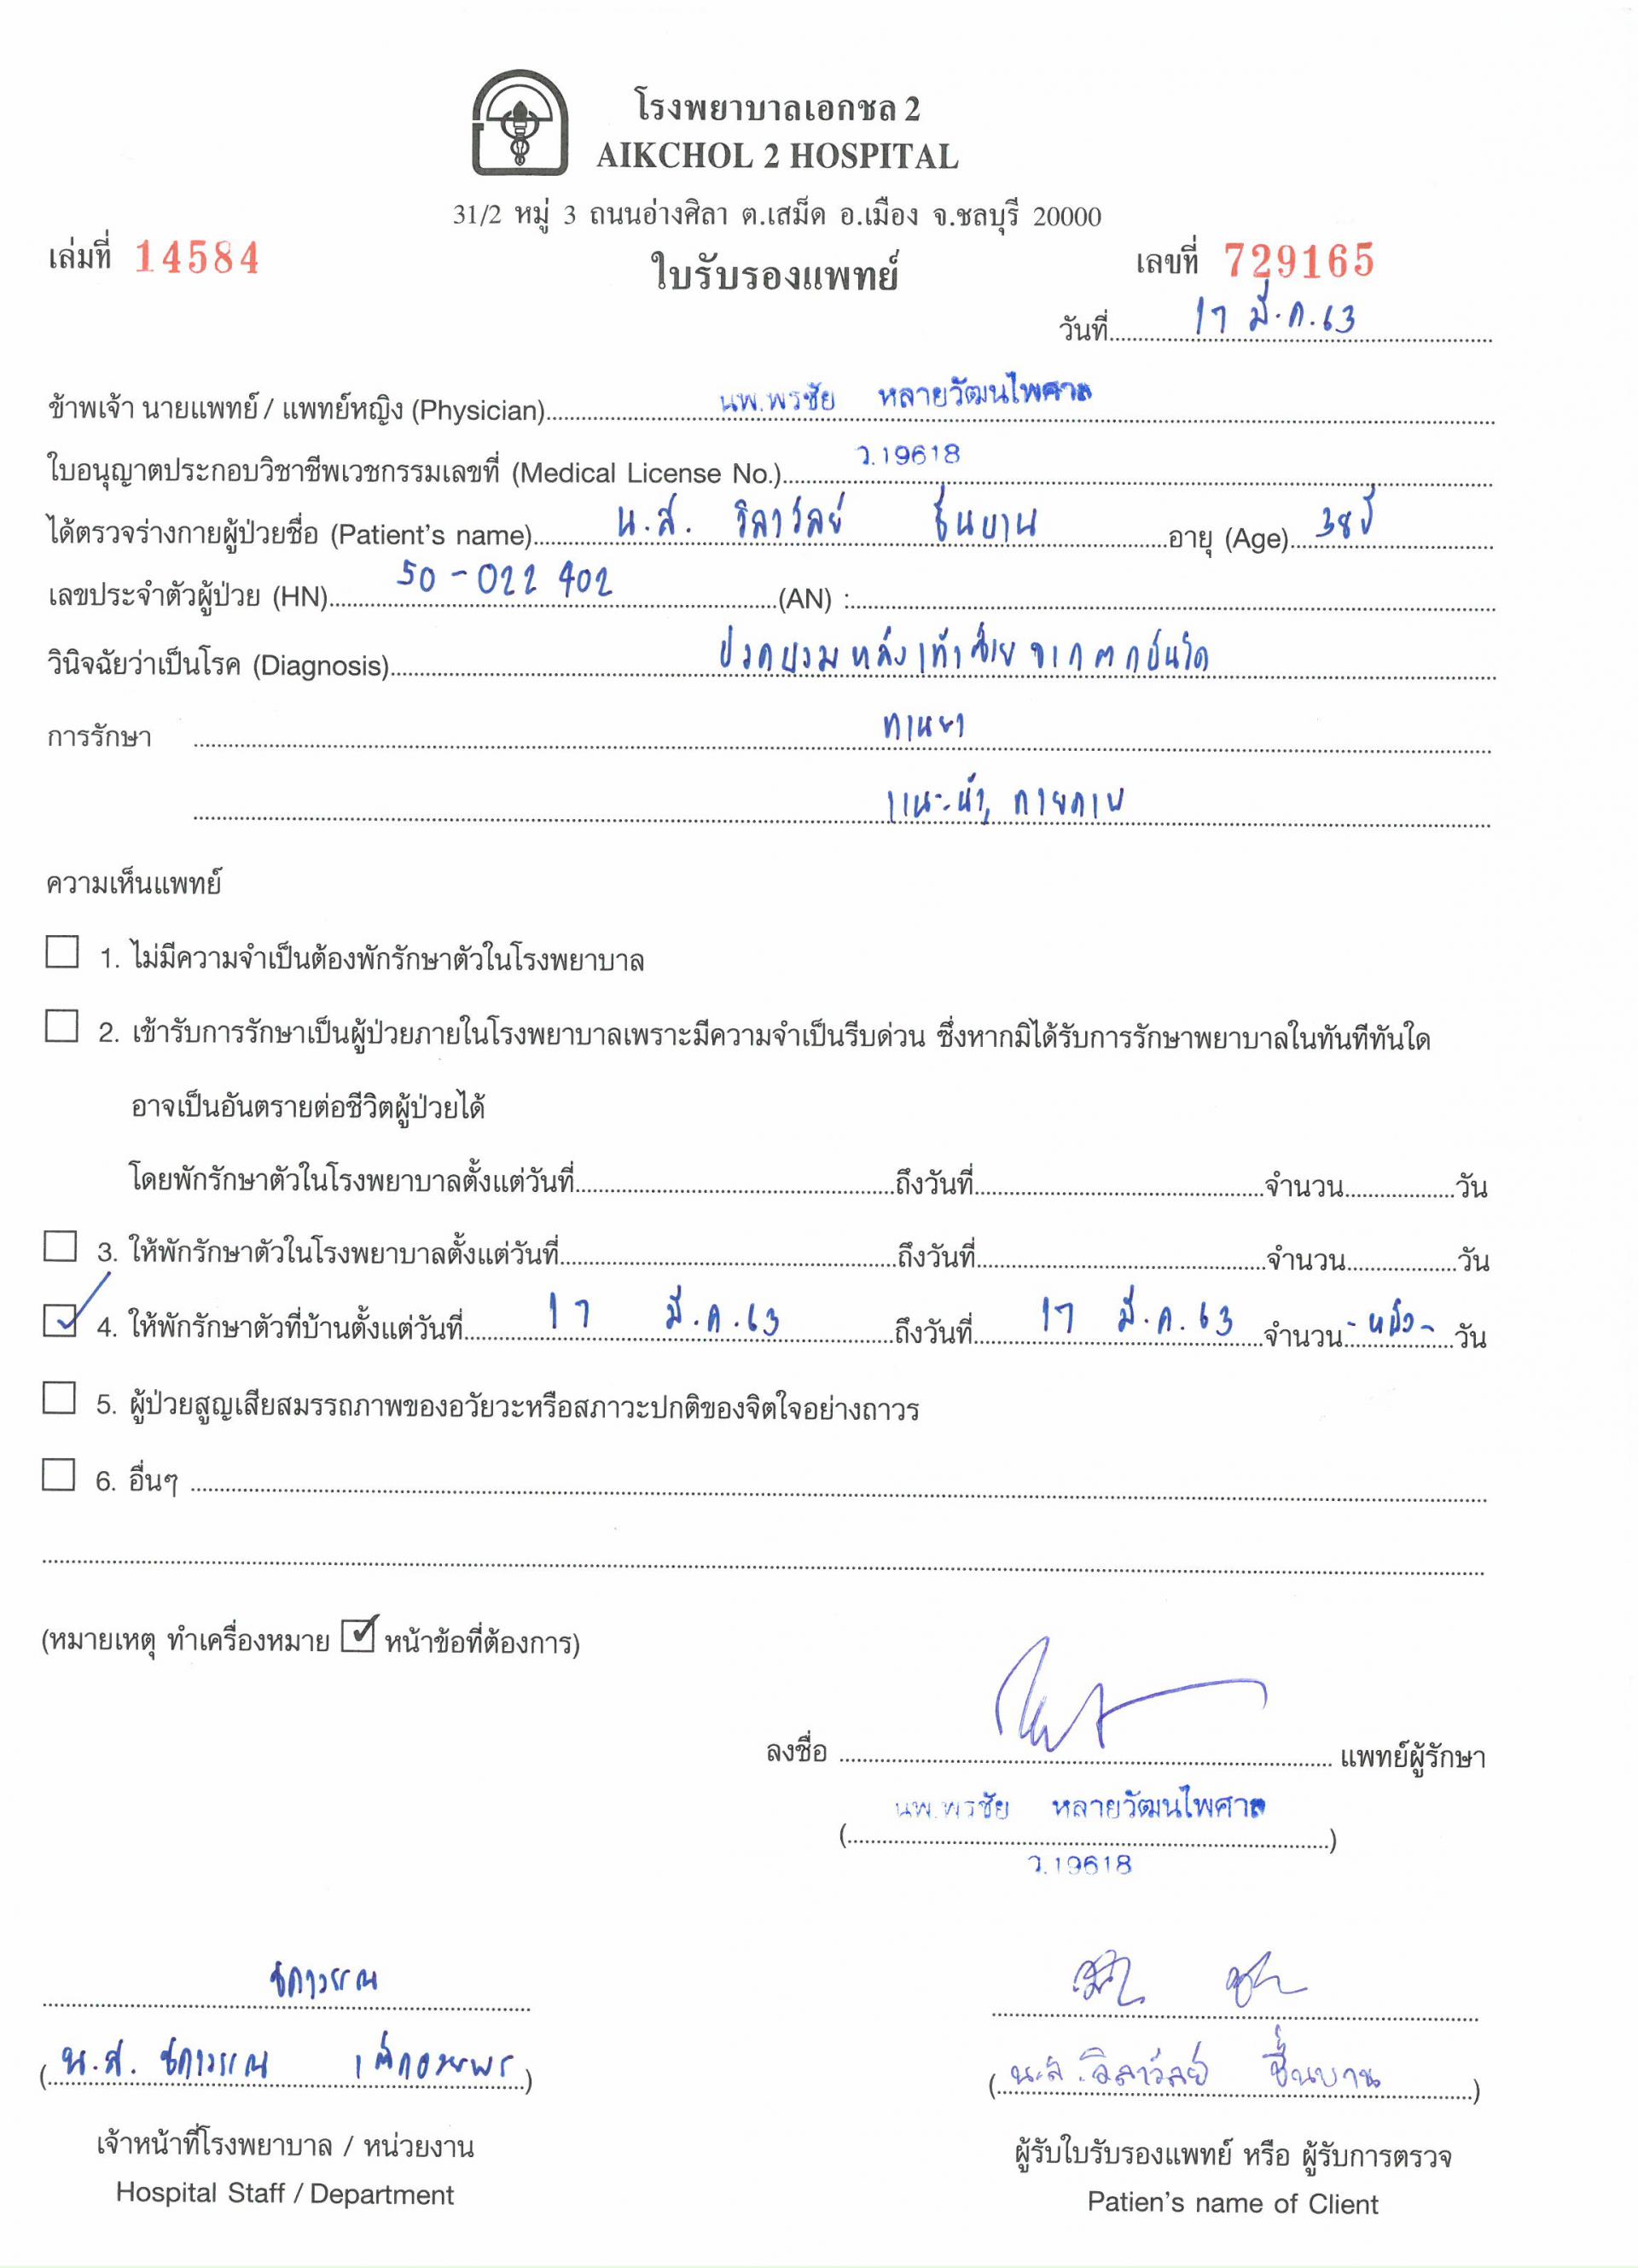 โรงพยาบาลเอกชล 2
AIKCHOL 2 HOSPITAL
31/2 หมู่ 3 ถนนอ่างศิลา ต.เสม็ด อ.เมือง จ.ชลบุรี 20000
เล่มที่ 14584
ใบรับรองแพทย์
เลขที่ 729165
วันที่ 17 มี.ค.63
ข้าพเจ้า นายแพทย์ / แพทย์หญิง (Physician) นพ.พรชัย หลายวัฒนไพศาล
ใบอนุญาตประกอบวิชาชีพเวชกรรมเลขที่ (Medical License No.) ว.19618
ได้ตรวจร่างกายผู้ป่วยชื่อ (Patient's name) น.ส. วิลาวัลย์ ชื่นบาน อายุ (Age) 38 ปี
เลขประจำตัวผู้ป่วย (HN) 50-022402 (AN) :
วินิจฉัยว่าเป็นโรค (Diagnosis) ปวดบวมหลังเท้าซ้ายจากตกบันได
การรักษา ทานยา
แนะนำ กายภาพ
ความเห็นแพทย์
1. ไม่มีความจำเป็นต้องพักรักษาตัวในโรงพยาบาล
2. เข้ารับการรักษาเป็นผู้ป่วยภายในโรงพยาบาลเพราะมีความจำเป็นรีบด่วน ซึ่งหากมิได้รับการรักษาพยาบาลในทันทีทันใด
อาจเป็นอันตรายต่อชีวิตผู้ป่วยได้
โดยพักรักษาตัวในโรงพยาบาลตั้งแต่วันที่ ถึงวันที่ จำนวน วัน
3. ให้พักรักษาตัวในโรงพยาบาลตั้งแต่วันที่ ถึงวันที่ จำนวน วัน
4. ให้พักรักษาตัวที่บ้านตั้งแต่วันที่ 17 มี.ค.63 ถึงวันที่ 17 มี.ค.63 จำนวน -หนึ่ง- วัน
5. ผู้ป่วยสูญเสียสมรรถภาพของอวัยวะหรือสภาวะปกติของจิตใจอย่างถาวร
6. อื่นๆ
(หมายเหตุ ทำเครื่องหมาย ☑ หน้าข้อที่ต้องการ)
ลงชื่อ แพทย์ผู้รักษา
นพ.พรชัย หลายวัฒนไพศาล
ว.19618
(น.ส.
(น.ส.วิลาวัลย์ ชื่นบาน)
เจ้าหน้าที่โรงพยาบาล / หน่วยงาน
ผู้รับใบรับรองแพทย์ หรือ ผู้รับการตรวจ
Hospital Staff / Department
Patien's name of Client